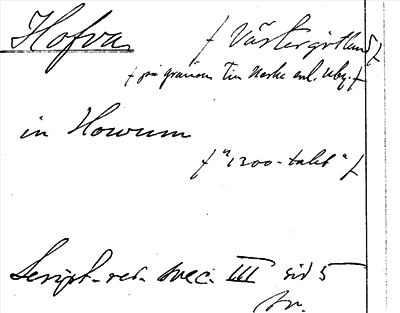 Hofva
/ Västergötland /
/ på gränsen till Närke enl. Ubg. /
in Howum
/ "1200-talet" /
Script. rer. svec. III sid 5